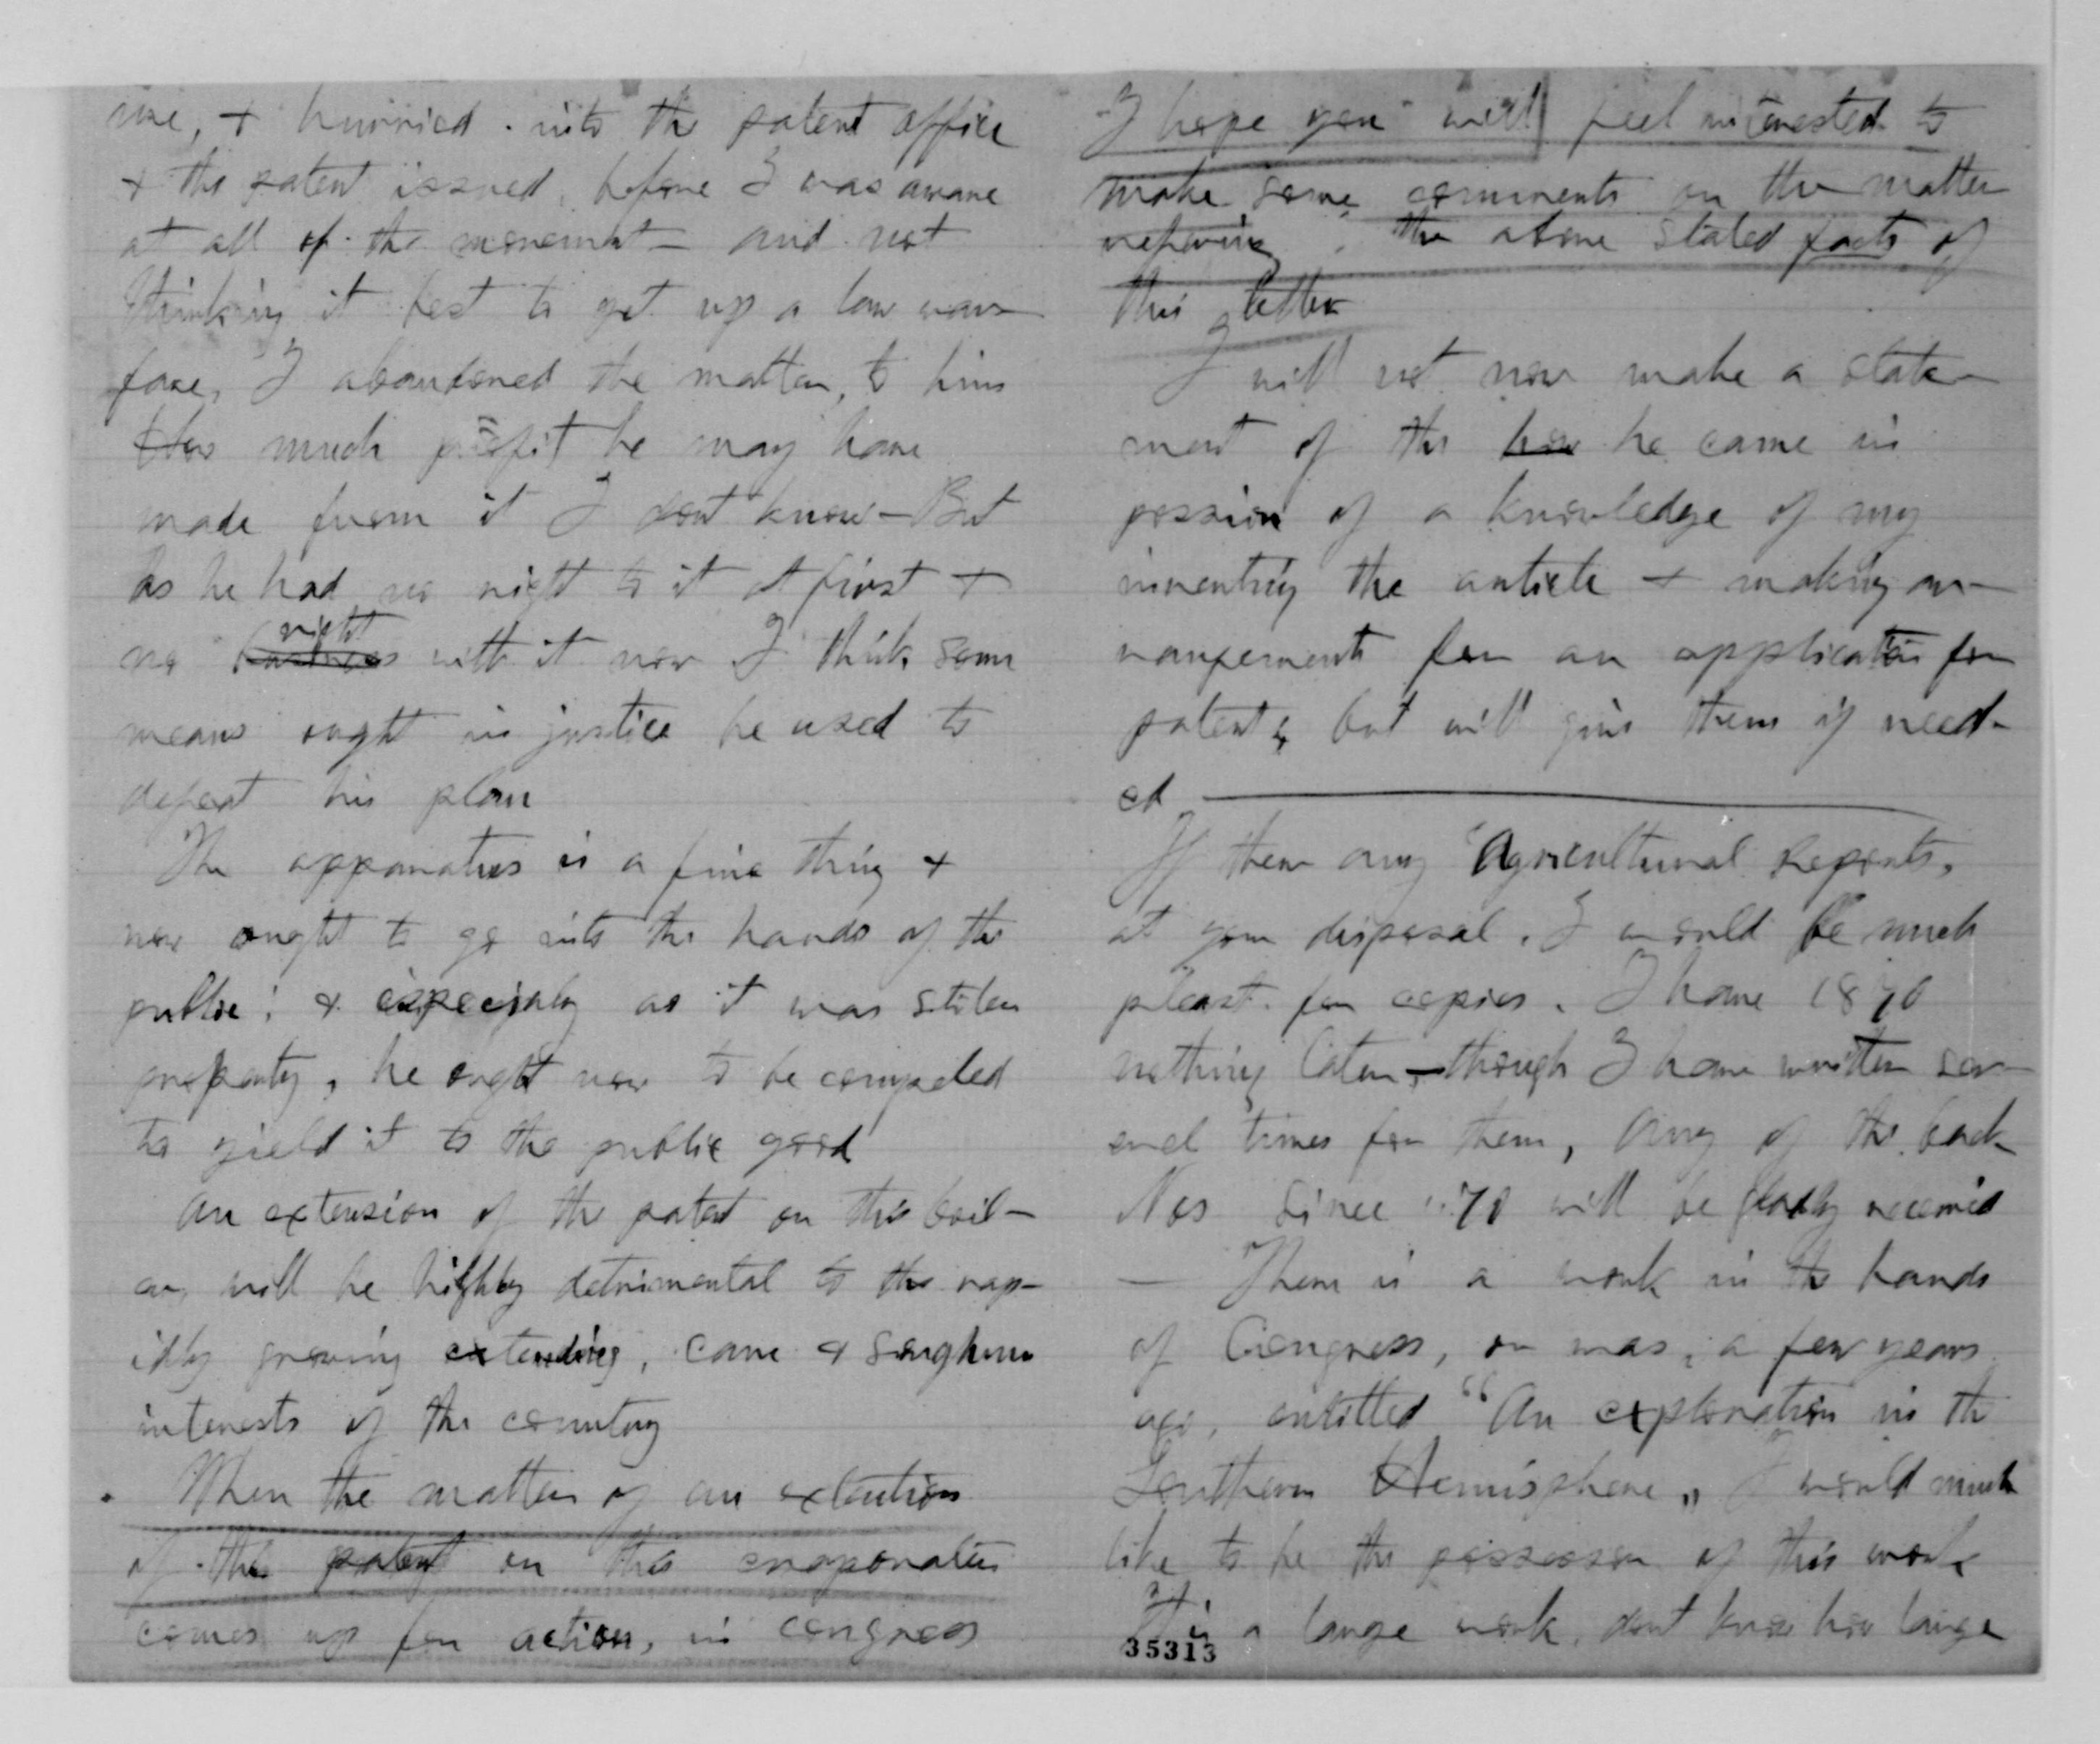 use, & hurried into the patent office
& the patent issued, before I was aware
at all of the movement — and not
thinking it best to get up a law war-
fare, I abandoned the matter, to him
How much profit he may have
made from it I dont know — But
as he had no right to it at first &
right
no business with it now I think some
means ought in justice be used to
defeat his plan
The apparatus is a fine thing &
now ought to go into the hands of the
public; & especialy as it was stolen
property, he ought now to be compeled
to yield it to the public good
An extension of the patent on this boil-
er, will be highly detrimental to the rap-
idly growing extending, cane & sorghum
interests of the country
When the matter of an extention
of this patent on this evaporator
comes up for action, in congress
I hope you will feel interested to
make some comments on the matter
refering, the above stated facts of
this letter
I will not now make a state-
ment of the how he came in
possion of a knowledge of my
inventing the article & making ar-
rangements for an application for
patent, but will give them if need-
ed
If there any "Agricultural Reports,
at your disposal, I would be much
pleast for copies. I have 1870
nothing later, — though I have written sev-
eral times for them, Any of the back
Nos since '70 will be gladly received
— There is a work in the hands
of Congress, or was, a few years
ago, entitled "An exploration in the
Southern Hemisphere" I would much
like to be the possessor of this work
It is a large work, dont know how large
35313